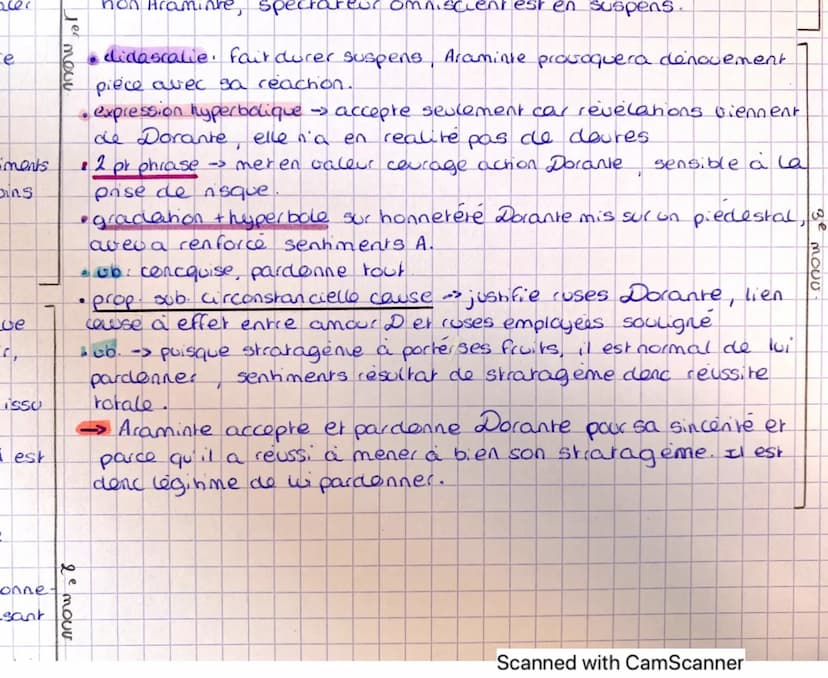 non Araminte, spectateur omniscient est en suspens.
• didascalie. fait durer suspens, Araminte provoquera dénouement
pièce avec sa réaction.
• expression hyperbolique -> accepte seulement car révélations viennent
de Dorante, elle n'a en réalité pas de doutes
• 2 pt phrase -> met en valeur courage action Dorante, sensible à la
prise de risque.
• gradation + hyperbole sur honneteré Dorante mis sur un piédestal,
aveu a renforcé sentiments A.
• vb : concquise, pardonne tout
• prop. sub. circonstancielle cause -> justifie ruses Dorante, lien
cause à effet entre amour D et ruses employées souligné
• vb. -> puisque stratagème à porté ses fruits, il est normal de lui
pardonner, sentiments résultat de stratagème donc réussite
totale.
-> Araminte accepte et pardonne Dorante pour sa sincérité et
parce qu'il a réussi à mener à bien son stratagème. Il est
donc légitime de lui pardonner.
1er mouv.
2e mouv
3e mouv.
iments
issu
est
onne-
sant
Scanned with CamScanner